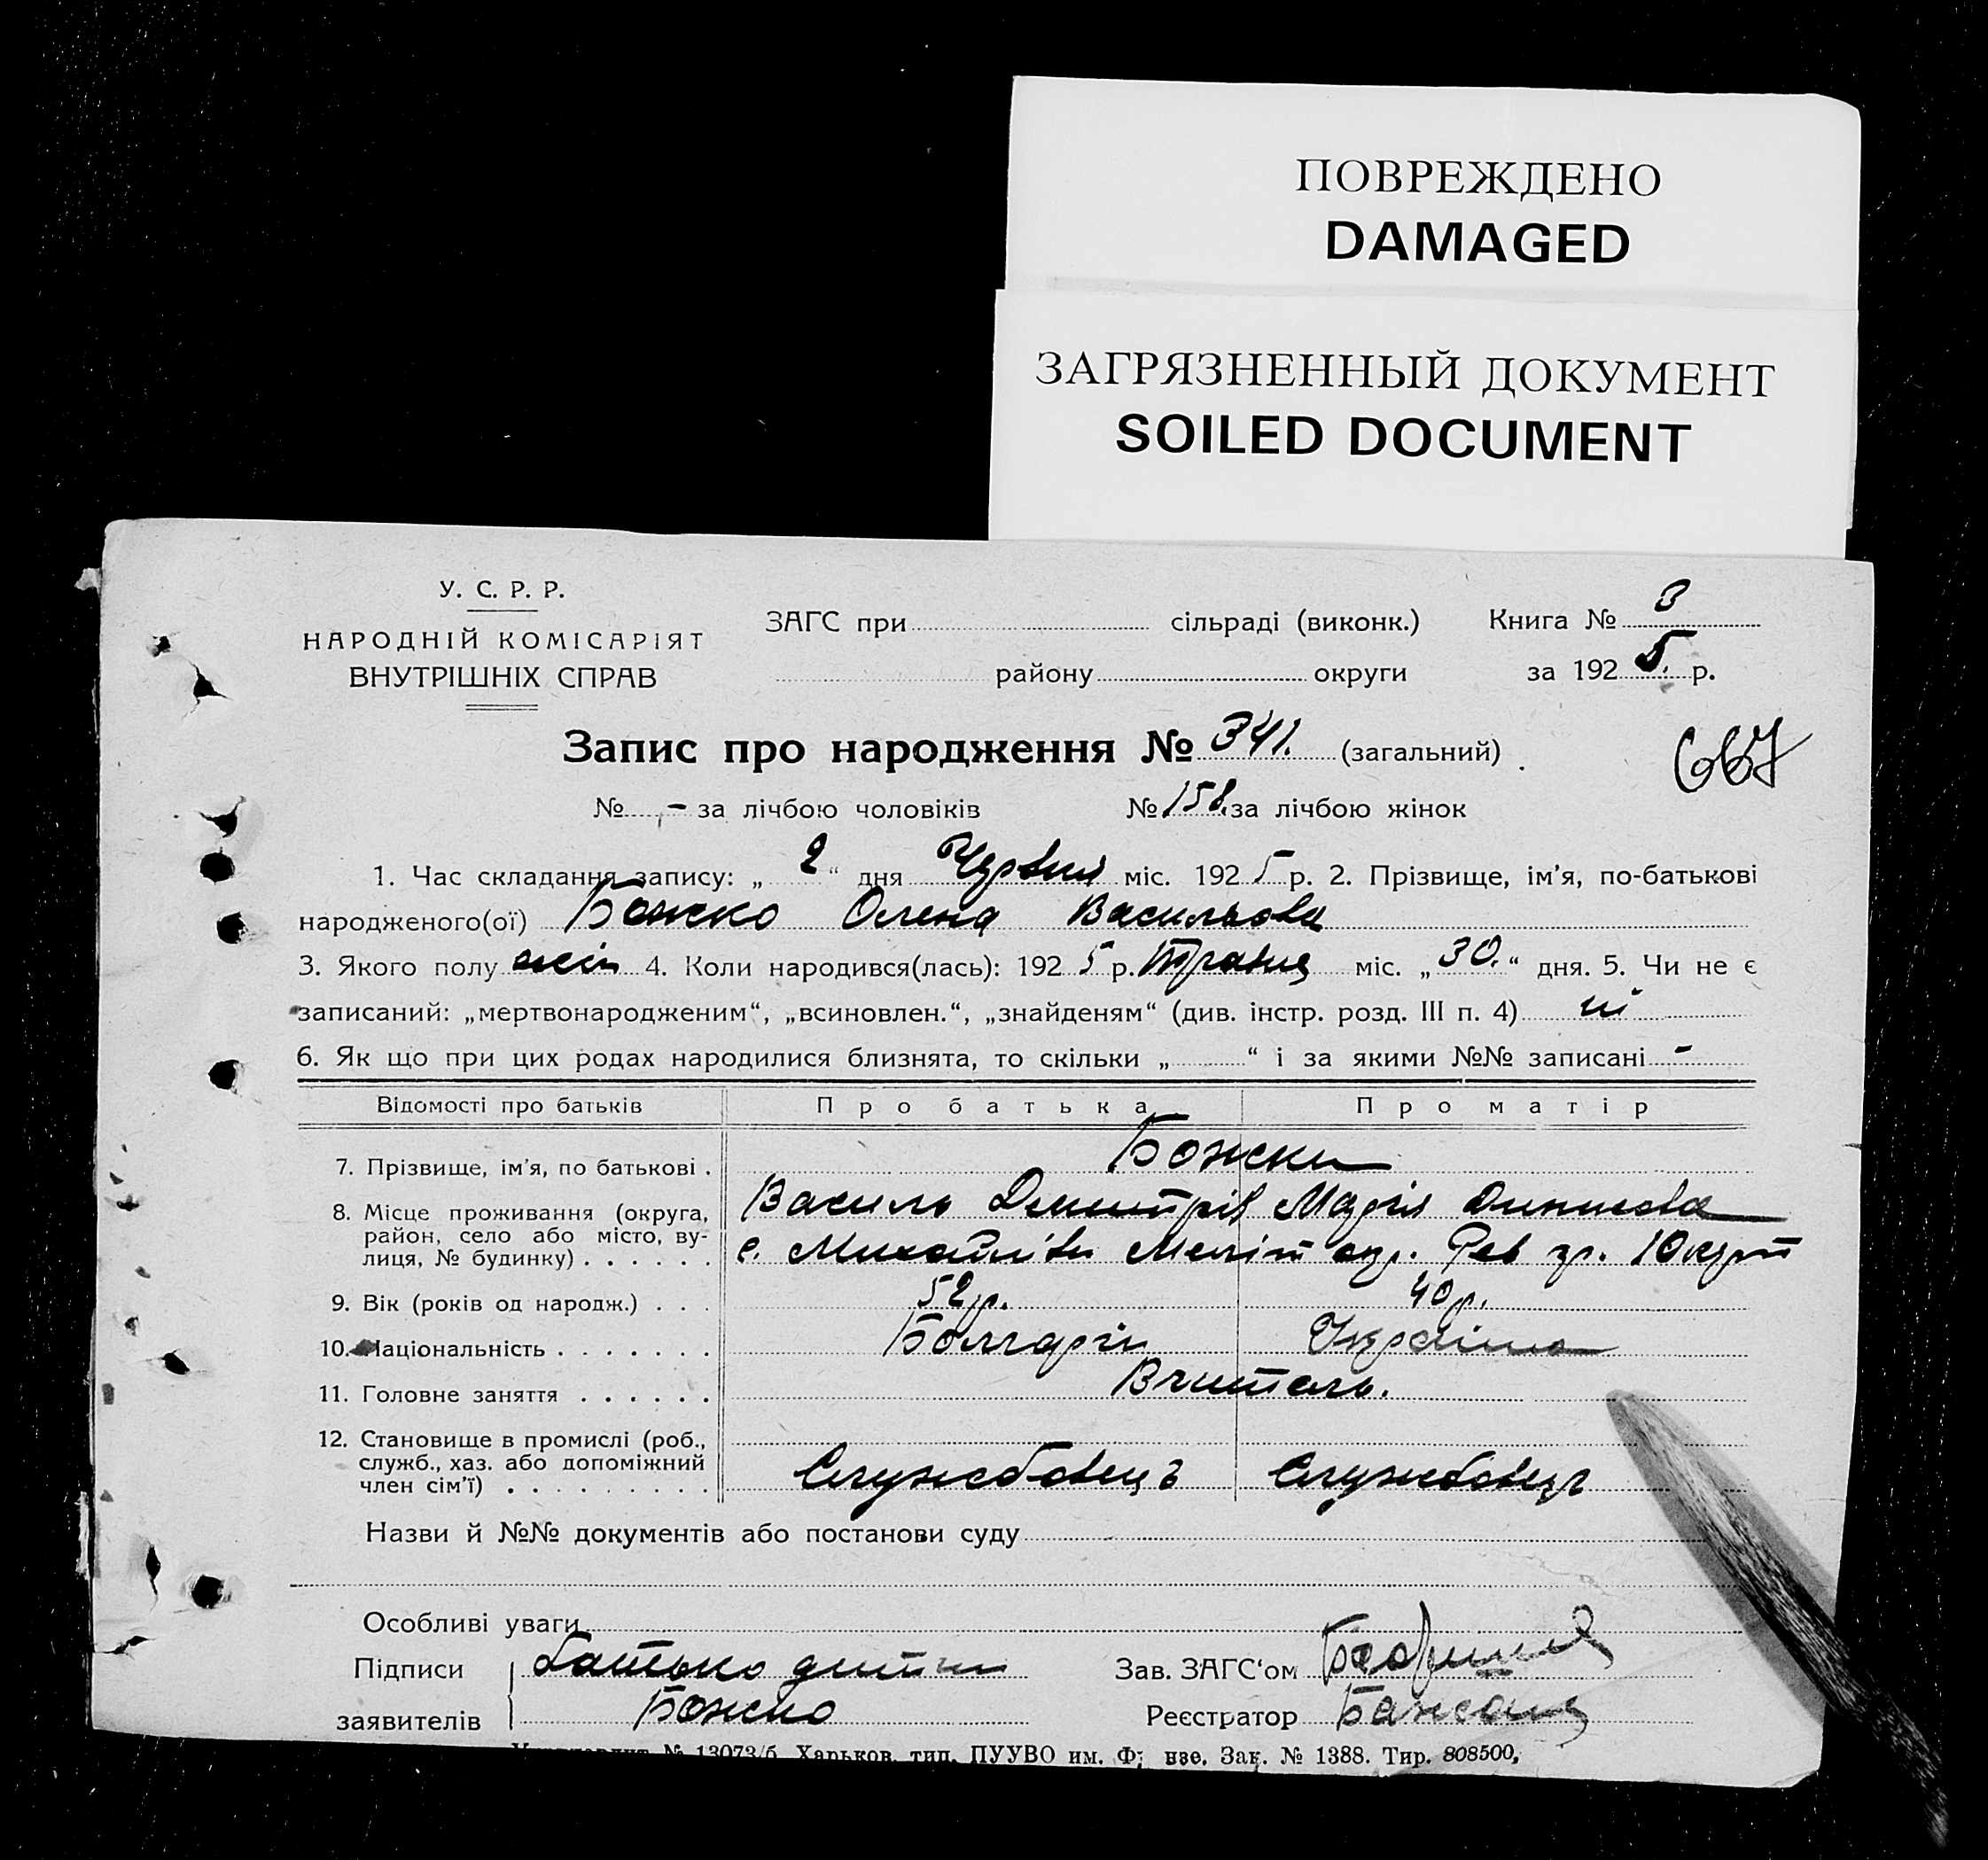 ПОВРЕЖДЕНО
DAMAGED
ЗАГРЯЗНЕННЫЙ ДОКУМЕНТ
SOILED DOCUMENT
У. С. Р. Р.
НАРОДНІЙ КОМІСАРІЯТ
ВНУТРІШНІХ СПРАВ
ЗАГС при сільраді (виконк.) Книга №
району округи за 1925. р.
Запис про народження № 341. (загальний)
667
№ - за лічбою чоловіків № 158. за лічбою жінок
1. Час складання запису: „2“ дня Червня міс. 1925 р. 2. Прізвище, ім'я, по-батькові
народженого(ої) Божко Олена Васильова
3. Якого полу жін 4. Коли народився(лась): 1925 р. Травня міс. „30.“ дня. 5. Чи не є
записаний: „мертвонародженим“, „всиновлен.“, „знайденям“ (див. інстр. розд. III п. 4) ні
6. Як що при цих родах народилися близнята, то скільки „ “ і за якими №№ записані -
Відомості про батьків Про батька Про матір
7. Прізвище, ім'я, по батькові . Божки
8. Місце проживання (округа, район, село або місто, вулиця, № будинку) . . . . . . Василь Дмитрів Марія
с. Михайлівки Меліт окр.
9. Вік (років од народж.) . . . 52 р. 40 р.
10. Національність . . . . . . . Болгарін Україінка
11. Головне заняття . . . . . . Вчитель.
12. Становище в промислі (роб.,
служб., хаз. або допоміжний
член сім'ї) . . . . . . . . . Службовець Службовець
Назви й №№ документів або постанови суду
Особливі уваги
Підписи батько дитини Зав. ЗАГС'ом
заявителів Божко Реєстратор
№ 13073/б. Харьков, тип. ПУУВО им. Ф. Зак. № 1388. Тир. 808500,